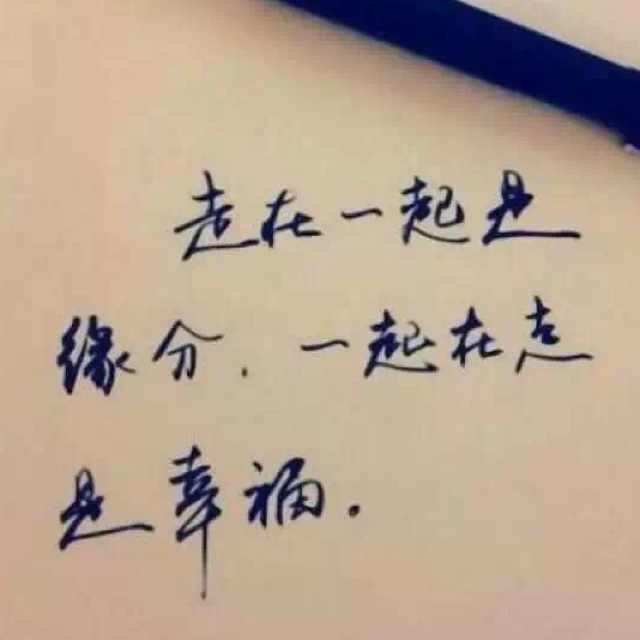 走在一起是
缘分、一起在走
是幸福.